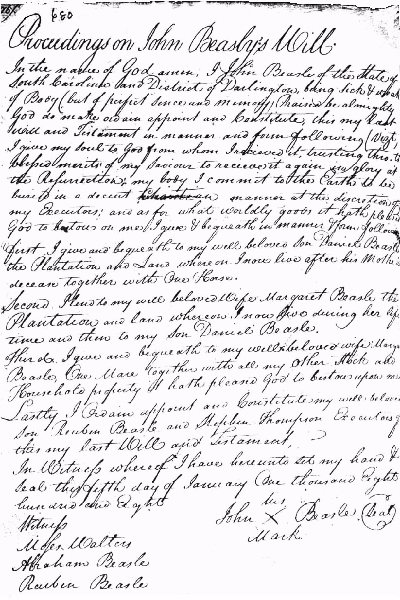 680
Proceedings on John Beasly's Will.
In the name of God amen, I John Beasle of the State of
South Carolina and District of Darlington, being Sick & weak
of Body (but of perfect Sence and memory, Praised be almighty
God do make ordain appoint and Constitute, this my Last
Will and Testament in manner and form following (Viz),
I give my soul to God from whom I received it, trusting thro. the
merits of my Saviour to receive it again in glory at
the Resurrection; my body I commit to the Earth to be
buried in a decent manner at the discretion of
my Executors; and as for what worldly goods it hath pleased
God to bestow on me, I give & bequeath in manner & form following
First I give and bequeath to my well beloved Son Daniel Beasle
the Plantation and Land whereon I now live after his Mother's
decease together with One Horse.
Second I lend to my well beloved Wife Margaret Beasle the
Plantation and land whereon I now live during her life
time and then to my Son Daniel Beasle.
Third I give and bequeath to my well beloved wife Margaret
Beasle, One Mare together with all my Other Stock and
Household property it hath pleased God to bestow upon me
Lastly I Ordain appoint and Constitute my well beloved
Son Reuben Beasle and Stephen Thompson Executors of
this my last Will and Testament.
In Witness whereof I have hereunto set my hand &
Seal this fifth day of January One thousand Eight
hundred and Eight
his
John X Beasle (Seal)
Mark
Witness
Moses Walters
Abraham Beasle
Reuben Beasle